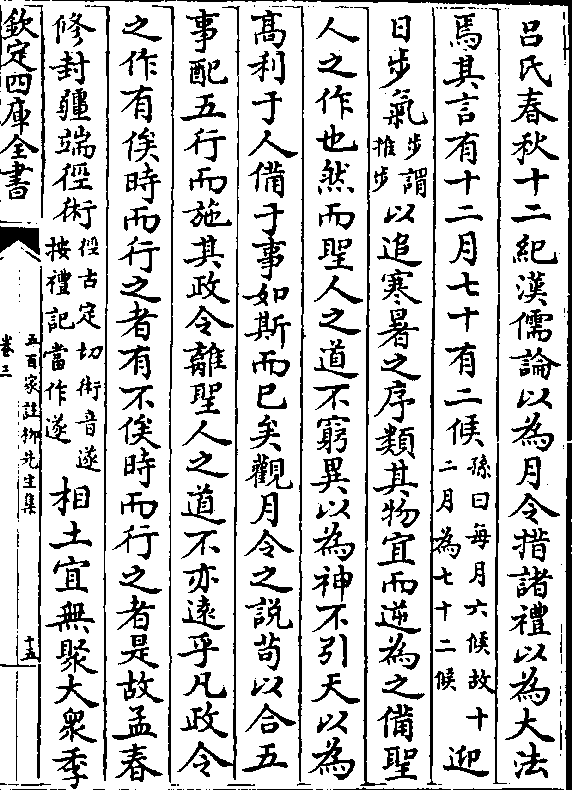 吕氏春秋十二紀漢儒論以為月令措諸禮以為大法
焉其言有十二月七十有二候孫曰每月六候故十二月為七十二候迎
日步氣步謂推步以追寒暑之序類其物宜而逆為之備聖
人之作也然而聖人之道不窮異以為神不引天以為
髙利于人備于事如斯而已矣觀月令之說苟以合五
事配五行而施其政令離聖人之道不亦逺乎凡政令
之作有俟時而行之者有不俟時而行之者是故孟春
修封疆端徑術徑古定切術音遂按禮記當作遂相土宜無聚大衆季
欽定四庫全書
五百家註栁先生集
卷三
十五